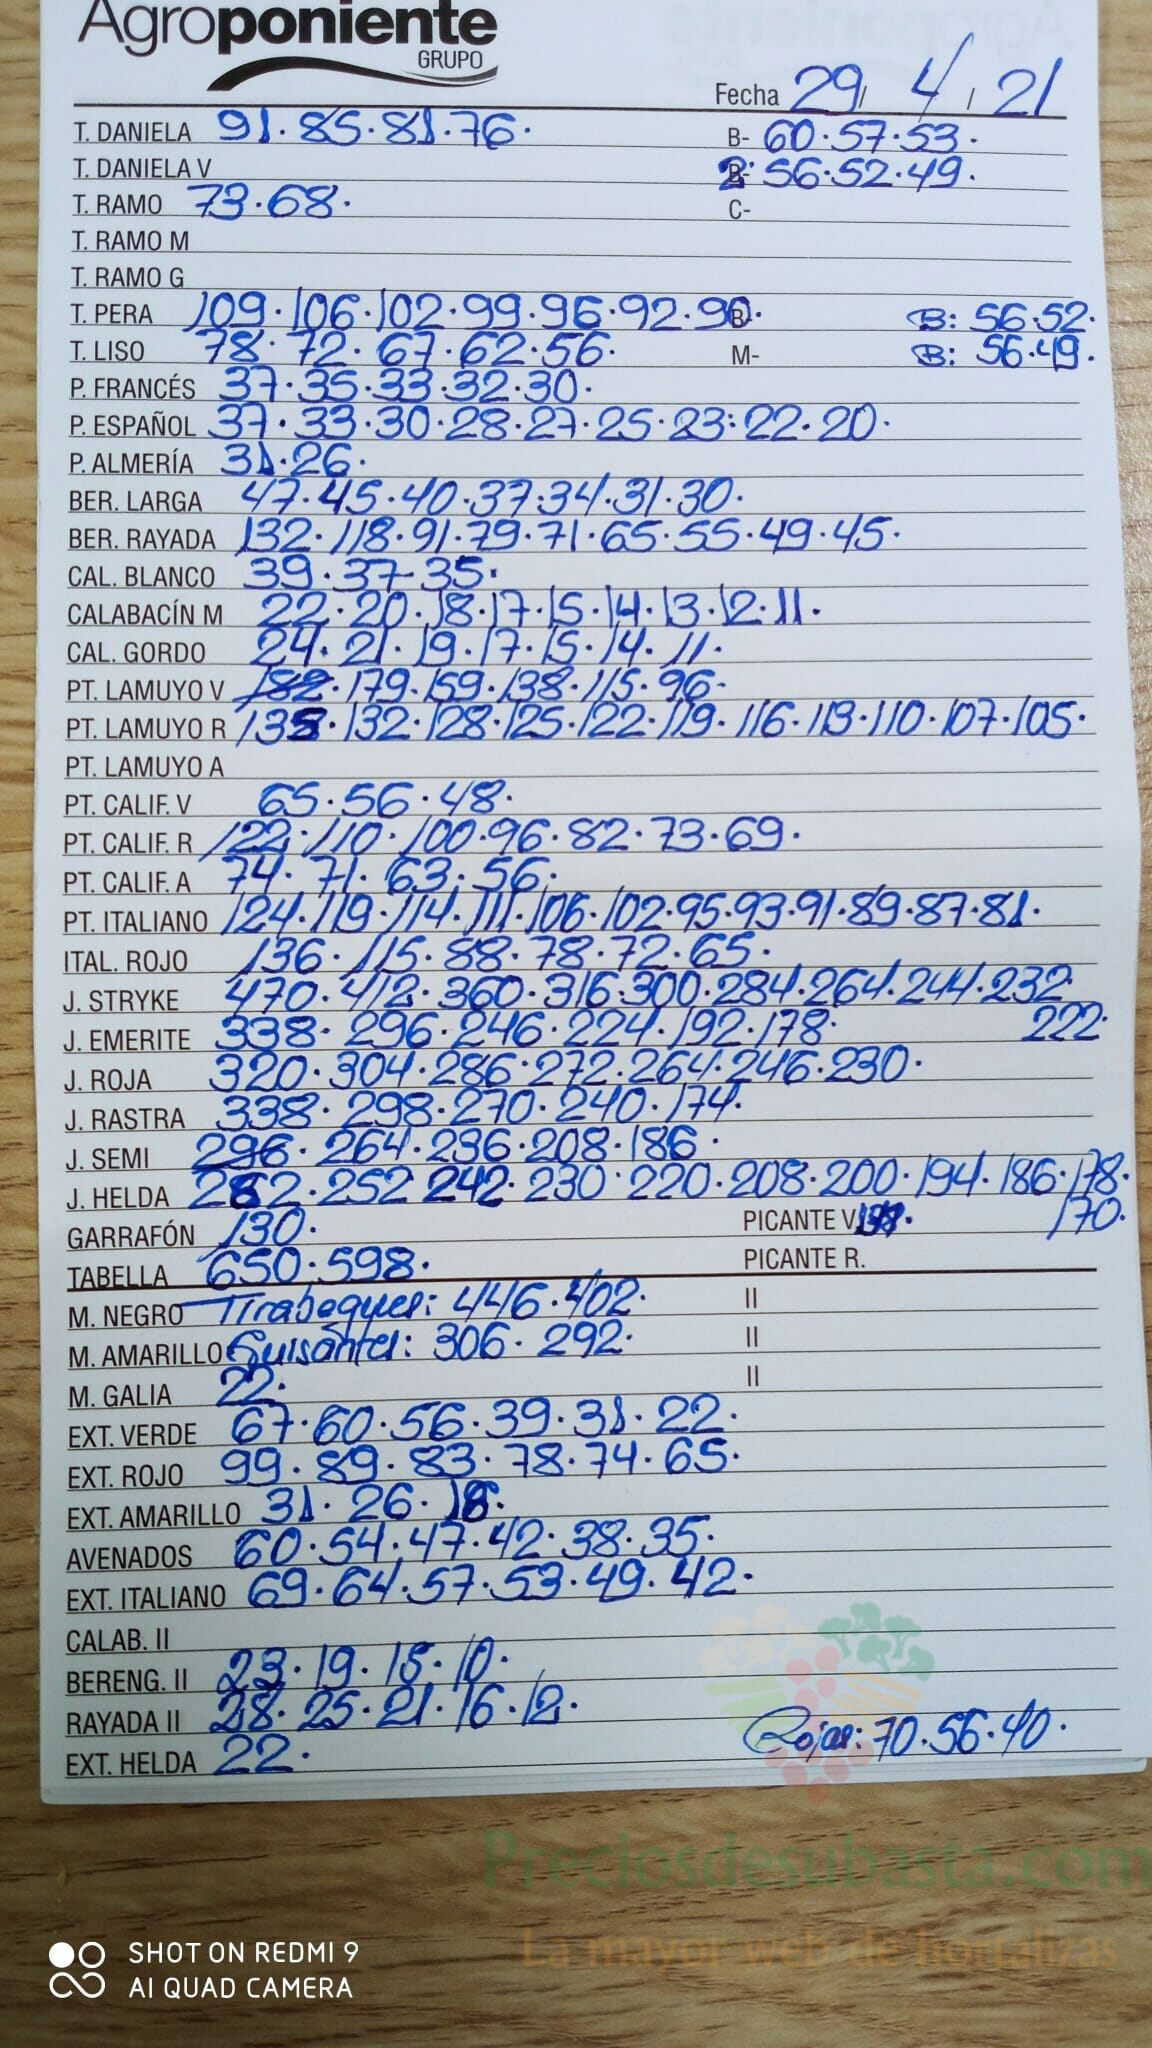 Agroponiente
GRUPO
Fecha 29/ 4/ 21
T. DANIELA 91.85.81.76. B- 60.57.53.
T. DANIELA V 2: 56.52.49.
T. RAMO 73.68. C-
T. RAMO M
T. RAMO G
T. PERA 109.106.102.99.96.92.90. B- B: 56.52.
T. LISO 78.72.67.62.56. M- B: 56.49.
P. FRANCÉS 37.35.33.32.30.
P. ESPAÑOL 37.33.30.28.27.25.23:22.20.
P. ALMERÍA 31.26.
BER. LARGA 47.45.40.37.34.31.30.
BER. RAYADA 132.118.91.79.71.65.55.49.45.
CAL. BLANCO 39.37-35.
CALABACÍN M 22.20.18.17.15.14.13.12.11.
CAL. GORDO 24.21.19.17.15.14.11.
PT. LAMUYO V 182.179.159.138.115.96.
PT. LAMUYO R 135.132.128.125.122.119.116.113.110.107.105.
PT. LAMUYO A
PT. CALIF. V 65.56.48.
PT. CALIF. R 122.110.100.96.82.73.69.
PT. CALIF. A 74.71.63.56.
PT. ITALIANO 124.119.114.111.106.102.95.93.91.89.87.81.
ITAL. ROJO 136.115.88.78.72.65.
J. STRYKE 470.412.360.316.300.284.264.244.232
J. EMERITE 338.296.246.224.192.178. 222.
J. ROJA 320.304.286.272.264.246.230.
J. RASTRA 338.298.270.240.174.
J. SEMI 296.264.236.208.186.
J. HELDA 252 242.230.220.208.200.194.186.178.
GARRAFÓN 130. PICANTE V. 170.
TABELLA 650.598. PICANTE R.
M. NEGRO Tirabeques: 446.402. II
M. AMARILLO Guisantes: 306.292. II
M. GALIA 22. II
EXT. VERDE 67.60.56.39.31.22.
EXT. ROJO 99.89.83.78.74.65.
EXT. AMARILLO 31.26.
AVENADOS 60.54.47.42.38.35.
EXT. ITALIANO 69.64.57.53.49.42.
CALAB. II
BERENG. II 23.19.15.10.
RAYADA II 28.25.21.16.12.
EXT. HELDA 22. Rojas: 70.56.40.
Preciosdesubasta.com
La mayor web de hortalizas
SHOT ON REDMI 9
AI QUAD CAMERA